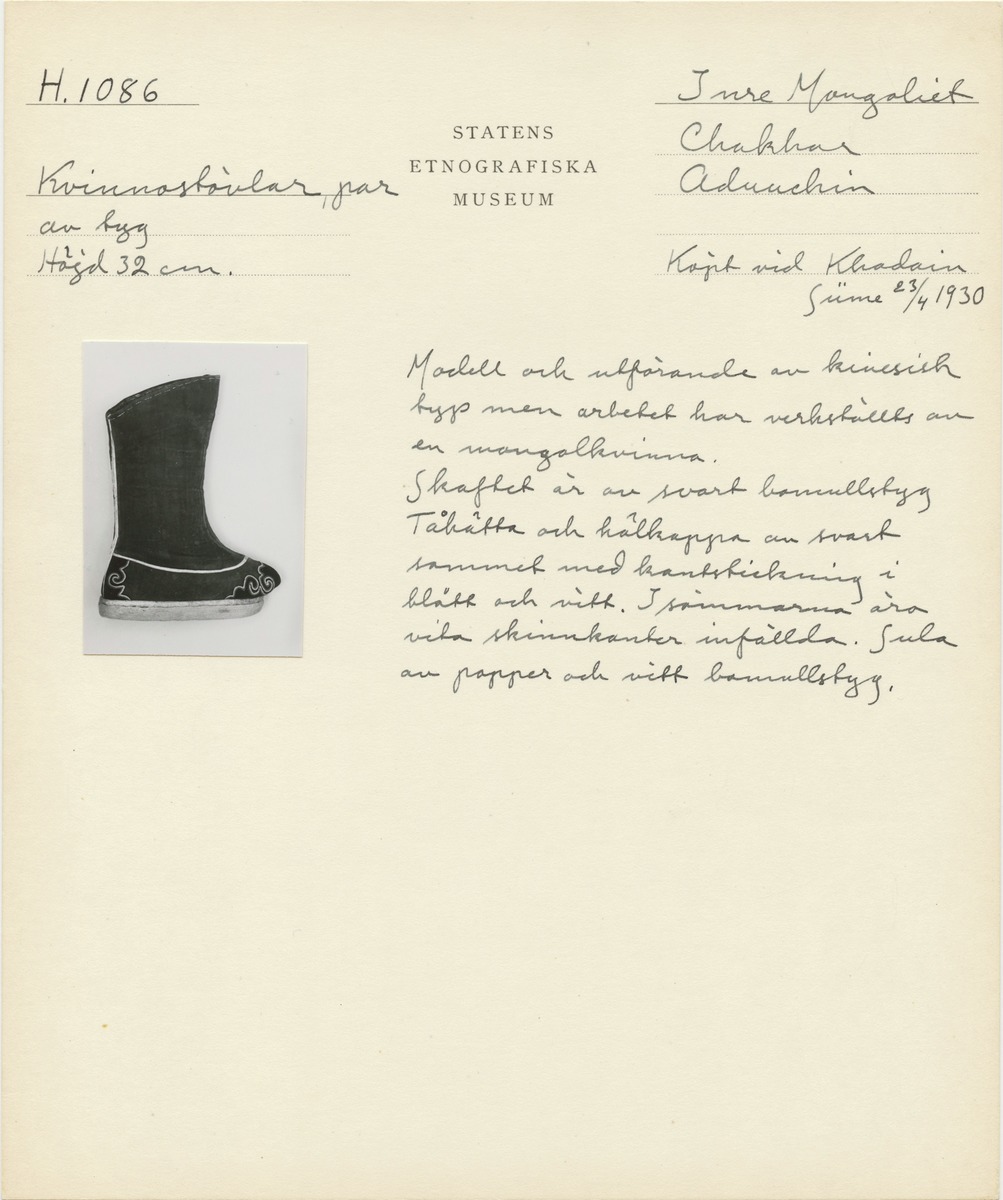 H. 1086
Kvinnostövlar, par
av tyg
Höjd 32 cm.
STATENS
ETNOGRAFISKA
MUSEUM
Inre Mongoliet
Chakhar
Aduuchin
Köpt vid Khadain
Süme 23/4 1930
Modell och utförande av kinesisk
typ men arbetet har verkställts av
en mongolkvinna.
Skaftet är av svart bomullstyg
Tåhätta och hälkappa av svart
sammet med kantstickning i
blått och vitt. I sömmarna äro
vita skinnkanter infällda. Sula
av papper och vitt bomullstyg.